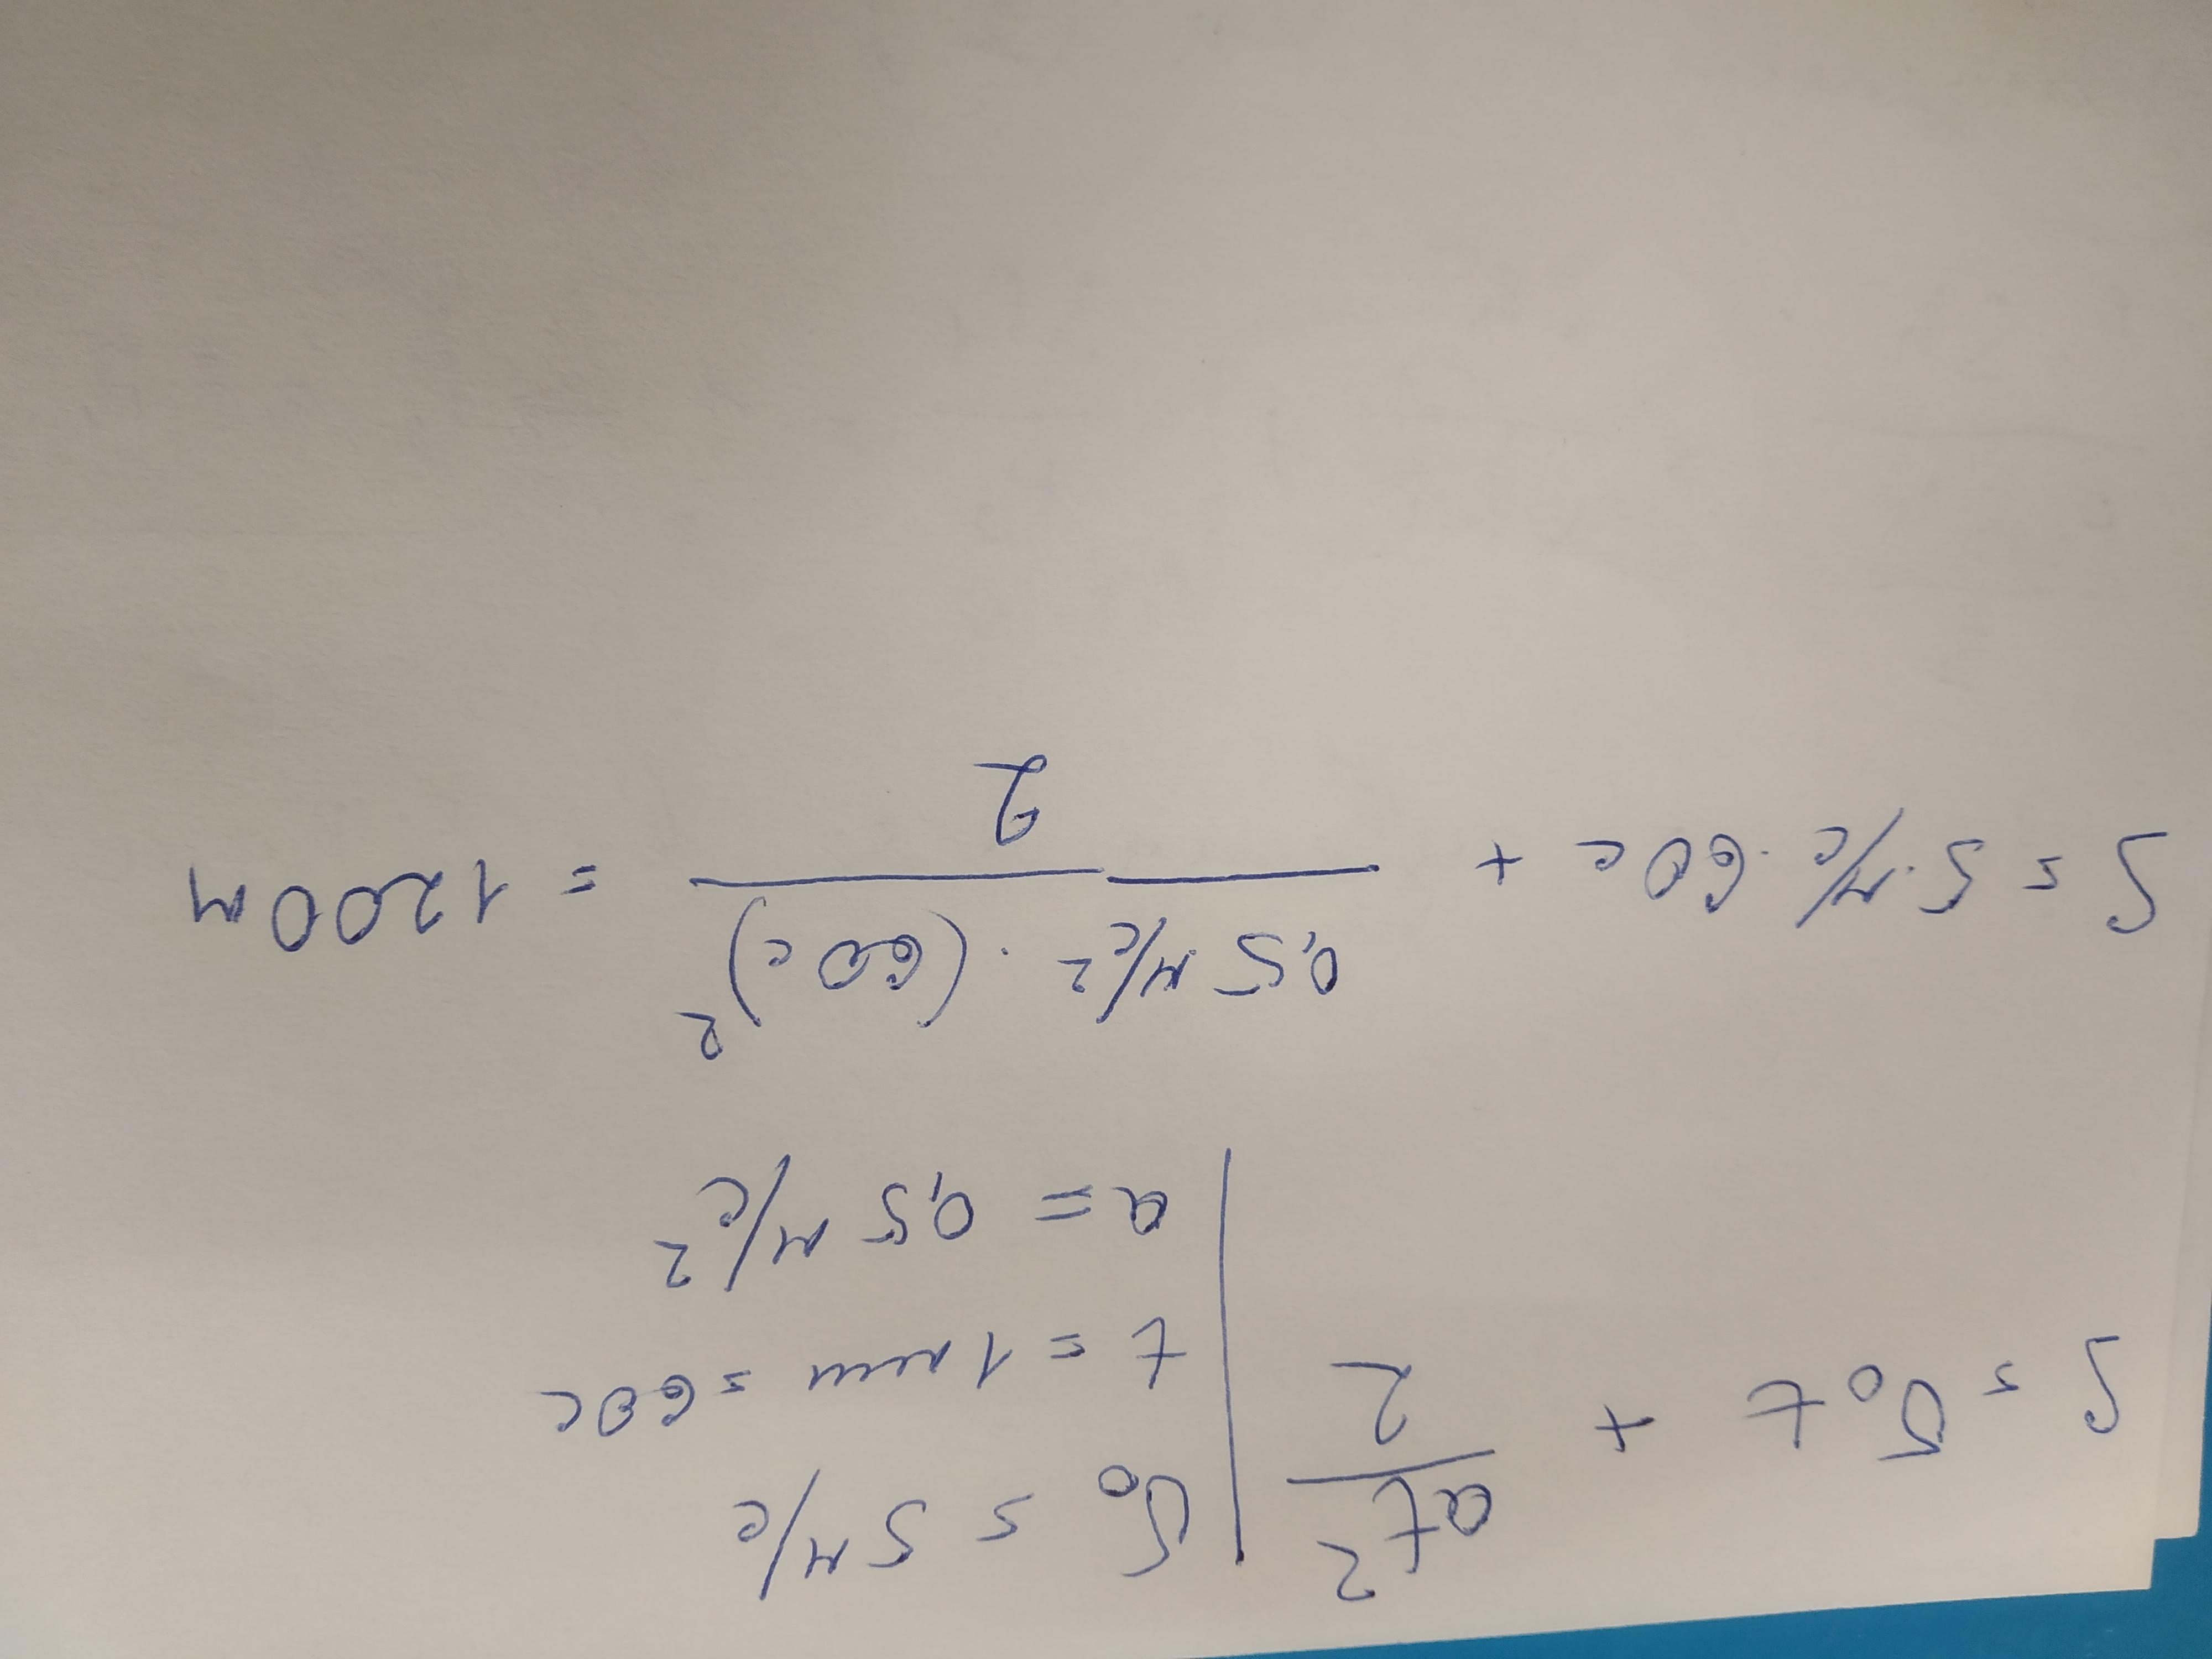 S = υ₀t + at²/2 | υ₀ = 5 м/с
t = 1 мин = 60с
a = 0,5 м/с²
S = 5 м/с · 60с + 0,5 м/с² · (60с)²/2 = 1200м